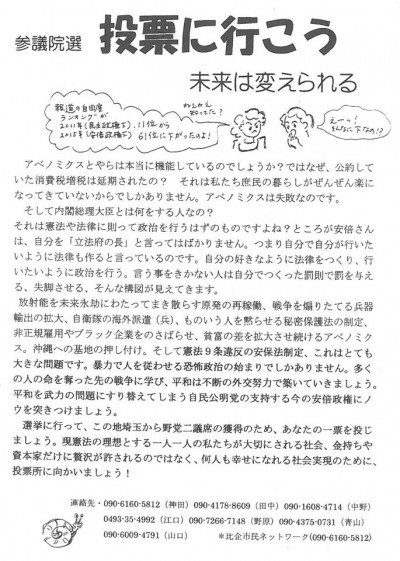 参議院選 投票に行こう
未来は変えられる
報道の自由度
ランキングが
2011年(民主政権下)、11位から
2015年(安倍政権下)61位に下がったのよ!
ねえねえ
知ってた?
えーっ!
そんなに下なの!?
アベノミクスとやらは本当に機能しているのでしょうか?ではなぜ、公約してい
た消費税増税は延期されたの? それは私たち庶民の暮らしがぜんぜん楽に
なってきていないからでしかありません。アベノミクスは失敗なのです。
そして内閣総理大臣とは何をする人なの?
それは憲法や法律に則って政治を行うはずのものですよね?ところが安倍さ
んは、自分を「立法府の長」と言ってはばかりません。つまり自分で自分が行いた
いように法律も作ると言っているのです。自分の好きなように法律をつくり、行
いたいように政治を行う。言う事をきかない人は自分でつくった罰則で罰を与え
る、失脚させる、そんな構図が見えてきます。
放射能を未来永劫にわたってまき散らす原発の再稼働、戦争を煽りたてる兵器
輸出の拡大、自衛隊の海外派遣(兵)、ものいう人を黙らせる秘密保護法の制定、
非正規雇用やブラック企業をのさばらせ、貧富の差を拡大させ続けるアベノミク
ス。沖縄への基地の押し付け。そして憲法9条違反の安保法制定、これはとても
大きな問題です。暴力で人を従わせる恐怖政治の始まりでしかありません。多く
の人の命を奪った先の戦争に学び、平和は不断の外交努力で築いていきましょう。
平和を武力の問題にすり替えてしまう自民公明党の支持する今の安倍政権にノ
ウを突きつけましょう。
選挙に行って、この地埼玉から野党二議席の獲得のため、あなたの一票を投じ
ましょう。現憲法の理想とする一人一人の私たちが大切にされる社会、金持ちや
資本家だけに贅沢が許されるのではなく、何人も幸せになれる社会実現のために、
投票所に向かいましょう!
連絡先・090-6160-5812(神田)090-4178-8609(田中)090-1608-4714(中野)
0493-35-4992(江口)090-7266-7148(野原)090-4375-0731(青山)
090-6009-4791(山口) *比企市民ネットワーク(090-6160-5812)